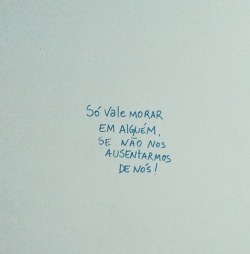 Só vale MORAR
EM Alguém,
SE NÃO NOS
AUSENTARMOS
DE NÓS!